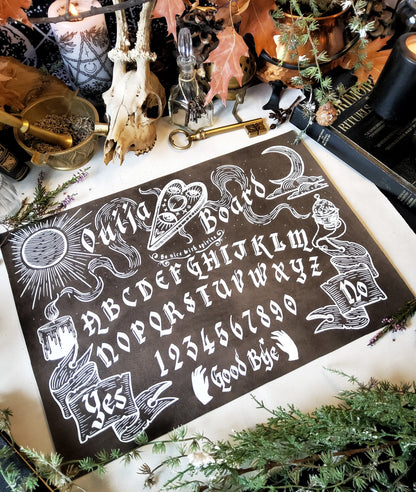 Ouija Board
Be nice with spirits
ABCDEFGHIJKLM
NOPQRSTUVWXYZ
1234567890
Yes
No
Good Bye
RITUALS